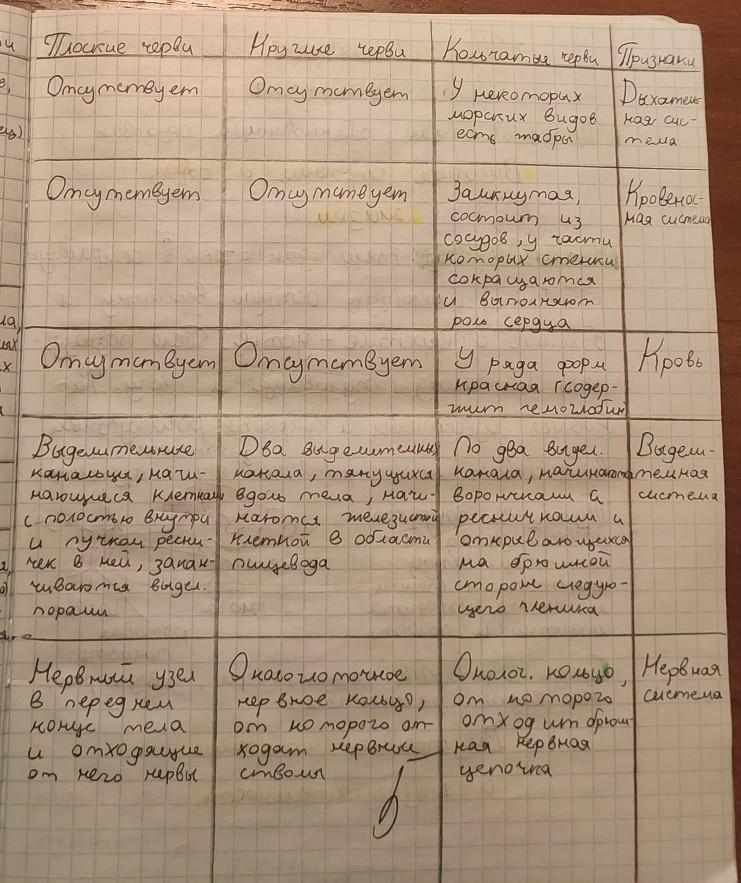 Плоские черви
Круглые черви
Кольчатые черви
Признаки
Отсутствует
Отсутствует
У некоторых
морских видов
есть жабры
Дыхатель-
ная сис-
тема
Отсутствует
Отсутствует
Замкнутая,
состоит из
сосудов, у части
которых стенки
сокращаются
и выполняют
роль сердца
Кровенос-
ная система
Отсутствует
Отсутствует
У ряда форм
красная (содер-
жит гемоглобин
Кровь
Выделительные
канальцы, начи-
нающиеся клетками
с полостью внутри
и пучком ресни-
чек в ней, закан-
чиваются выдел.
порами
Два выделительных
канала, тянущихся
вдоль тела, начи-
наются железистой
клеткой в области
пищевода
По два выдел.
канала, начинают
воронками и
ресничками и
открывающихся
на брюшной
стороне следую-
щего членика
Выдели-
тельная
система
Нервный узел
в переднем
конце тела
и отходящие
от него нервы
Окологлоточное
нервное кольцо,
от которого от-
ходят нервные
стволы
Околог. кольцо,
от которого
отходит брюш-
ная нервная
цепочка
Нервная
система